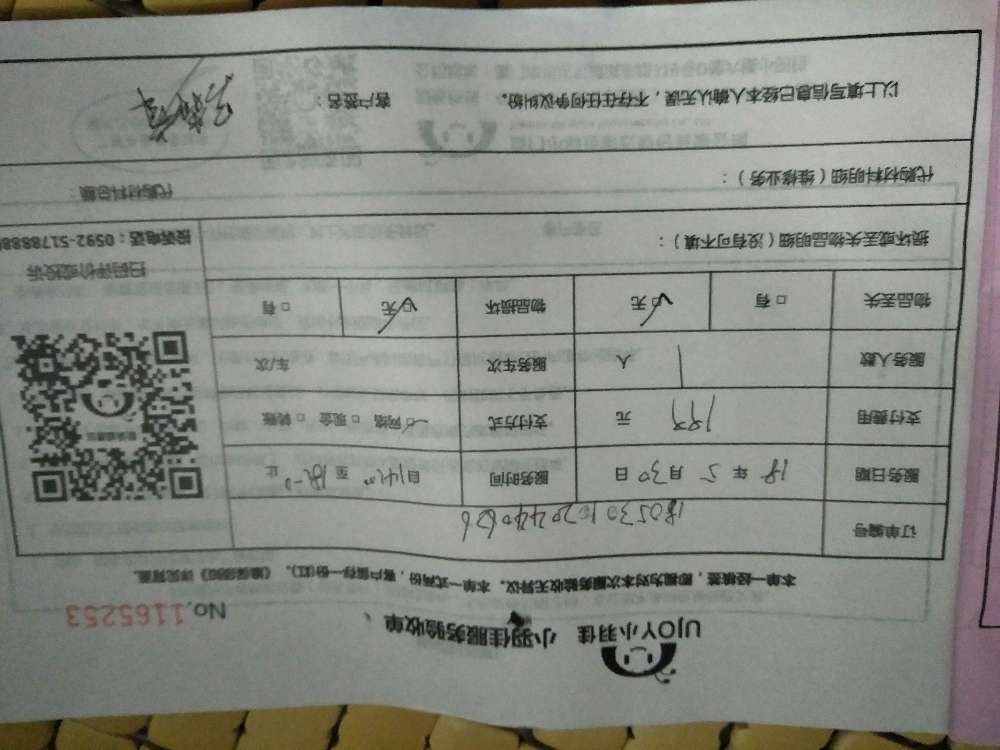 UJOY小羽佳 小羽佳服务验收单
No.1165253
本单一经核签，即视为对本次服务验收无异议。本单一式两份，客户留存一份(红)。
订单编号 180530102044066
服务日期 18年5月30日 服务时间 自14:00至18:00止
支付费用 199元 支付方式 ☑网络 □现金 □转账
服务人数 1人 服务车次 车/次
物品丢失 □有 ☑无 物品损坏 ☑无 □有
扫码评价或投诉
投诉电话：0592-5178888
损坏或丢失物品明细（没有可不填）：
代购材料明细（维修业务）：
代购材料总额：
以上填写信息已经本人确认无误，不存在任何争议纠纷。 客户签名：